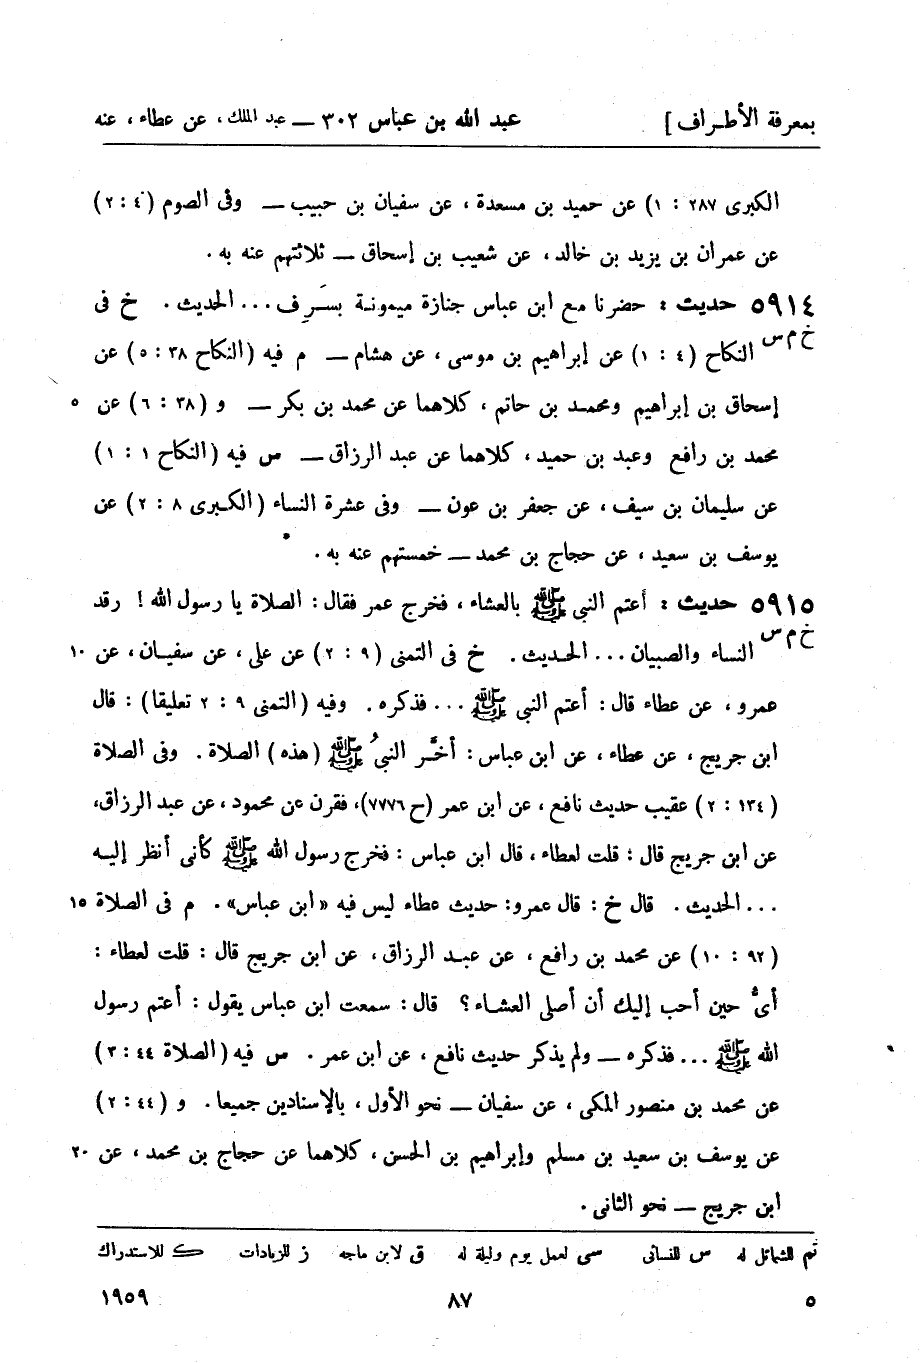 بمعرفة الأطـراف ] عبد الله بن عباس ٣٠٢ — عبد الملك ، عن عطاء ، عنه
الكبرى ٢٨٧ : ١) عن حميد بن مسعدة ، عن سفيان بن حبيب — وفى الصوم (٤ : ٢)
عن عمران بن يزيد بن خالد ، عن شعيب بن إسحاق — ثلاثتهم عنه به .
٥٩١٤ حديث : حضرنا مع ابن عباس جنازة ميمونـة بسَـرِف ... الحديث . خ فى
خ م س النكاح (٤ : ١) عن إبراهيم بن موسى ، عن هشام — م فيه (النكاح ٣٨ : ٥) عن
إسحاق بن إبراهيم ومحمـد بن حاتم ، كلاهما عن محمد بن بكر — و (٣٨ : ٦) عن ٥
محمد بن رافع وعبد بن حميد ، كلاهما عن عبد الرزاق — س فيه (النكاح ١ : ١)
عن سليمان بن سيف ، عن جعفر بن عون — وفى عشرة النساء (الكـبرى ٨ : ٢) عن
يوسف بن سعيد ، عن حجاج بن محمد — خمستهم عنه به .
٥٩١٥ حديث : أعتم النبي ﷺ بالعشاء ، فخرج عمر فقال : الصلاة يا رسول الله ! رقد
خ م س النساء والصبيان ... الحـديث . خ فى التمنى (٩ : ٢) عن على ، عن سفيـان ، عن ١٠
عمرو ، عن عطاء قال : أعتم النبي ﷺ ... فذكره . وفيه (التمنى ٩ : ٢ تعليقا) : قال
ابن جريج ، عن عطاء ، عن ابن عباس : أخَّـر النبيُ ﷺ (هذه) الصلاة . وفى الصلاة
(١٣٤ : ٢) عقيب حديث نافع ، عن ابن عمر (ح ٧٧٧٦)، فقرن عن محمود ، عن عبد الرزاق،
عن ابن جريج قال : قلت لعطاء ، قال ابن عباس : فخرج رسول الله ﷺ كأنى أنظر إليـه
... الحديث . قال خ : قال عمرو : حديث عطاء ليس فيه «ابن عباس» . م فى الصلاة ١٥
(٩٢ : ١٠) عن محمد بن رافع ، عن عبـد الرزاق ، عن ابن جريج قال : قلت لعطاء :
أىُّ حين أحب إليك أن أصلى العشـاء ؟ قال : سمعت ابن عباس يقول : أعتم رسول
الله ﷺ ... فذكره — ولم يذكر حديث نافع ، عن ابن عمر . س فيه (الصلاة ٤٤ : ٣)
عن محمد بن منصور المكى ، عن سفيان — نحو الأول ، بالإسنادين جميعا . و (٤٤ : ٢)
عن يوسف بن سعيد بن مسلم وإبراهيم بن الحسن ، كلاهما عن حجاج بن محمد ، عن ٢٠
ابن جريج — نحو الثانى .
تم للشمائل له س للنسائى سى لعمل يوم وليلة له ق لابن ماجه ز للزيادات ك للاستدراك
٥ ٨٧ ١٩٥٩